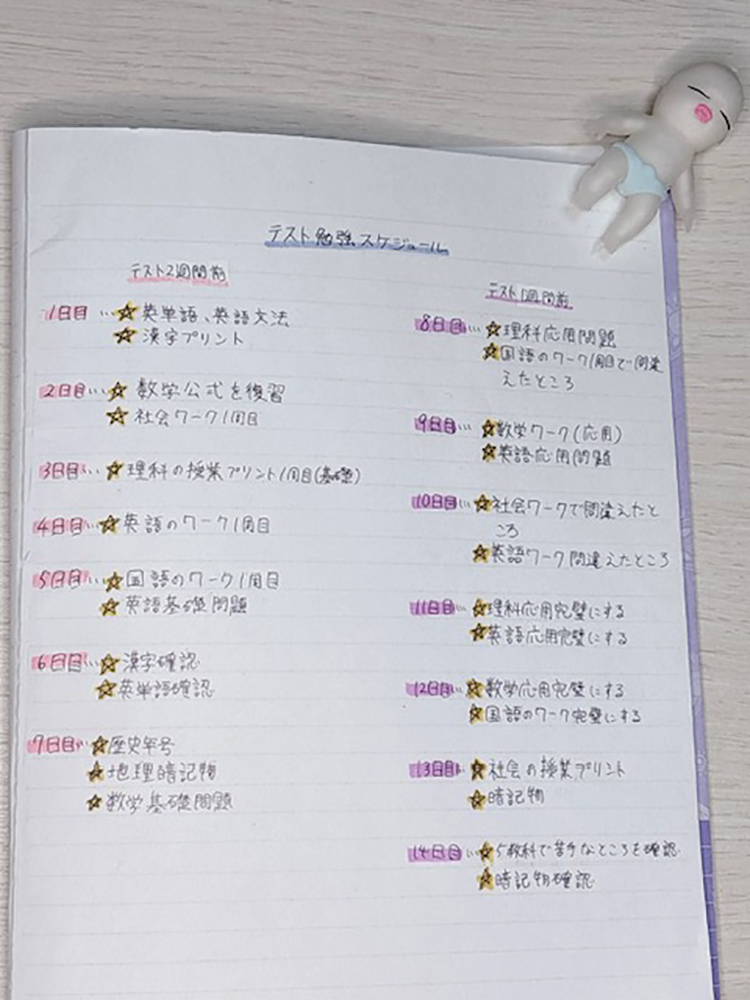 テスト勉強スケジュール
テスト2週間前
1日目…☆英単語、英語文法
☆漢字プリント
2日目…☆数学公式を復習
☆社会ワーク1周目
3日目…☆理科の授業プリント1周目(基礎)
4日目…☆英語のワーク1周目
5日目…☆国語のワーク1周目
☆英語基礎問題
6日目…☆漢字確認
☆英単語確認
7日目…☆歴史年号
☆地理暗記物
☆数学基礎問題
テスト1週間前
8日目…☆理科応用問題
☆国語のワーク1周目で間違
えたところ
9日目…☆数学ワーク(応用)
☆英語応用問題
10日目…☆社会ワークで間違えたと
ころ
☆英語ワーク間違えたところ
11日目…☆理科応用完璧にする
☆英語応用完璧にする
12日目…☆数学応用完璧にする
☆国語のワーク完璧にする
13日目…☆社会の授業プリント
☆暗記物
14日目…☆5教科で苦手なところを確認
☆暗記物確認